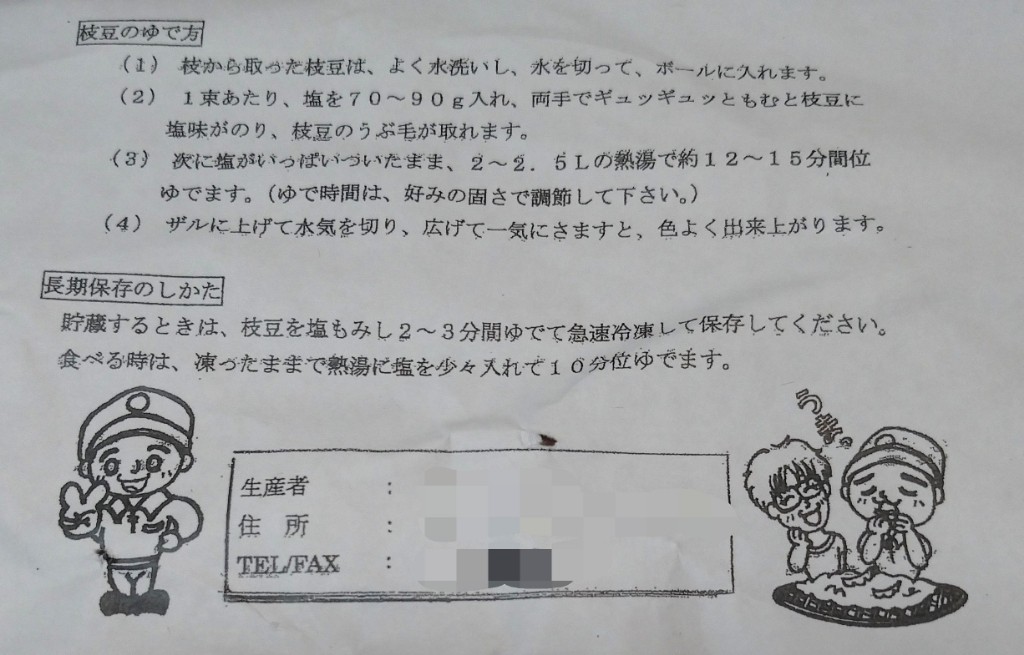 枝豆のゆで方
（１） 枝から取った枝豆は、よく水洗いし、水を切って、ボールに入れます。
（２） １束あたり、塩を７０～９０ｇ入れ、両手でギュッギュッともむと枝豆に
塩味がのり、枝豆のうぶ毛が取れます。
（３） 次に塩がいっぱいついたまま、２～２．５Ｌの熱湯で約１２～１５分間位
ゆでます。（ゆで時間は、好みの固さで調節して下さい。）
（４） ザルに上げて水気を切り、広げて一気にさますと、色よく出来上がります。
長期保存のしかた
貯蔵するときは、枝豆を塩もみし２～３分間ゆでて急速冷凍して保存してください。
食べる時は、凍ったままで熱湯に塩を少々入れて１０分位ゆでます。
うまっ
生産者 ：
住 所 ：
TEL/FAX ：